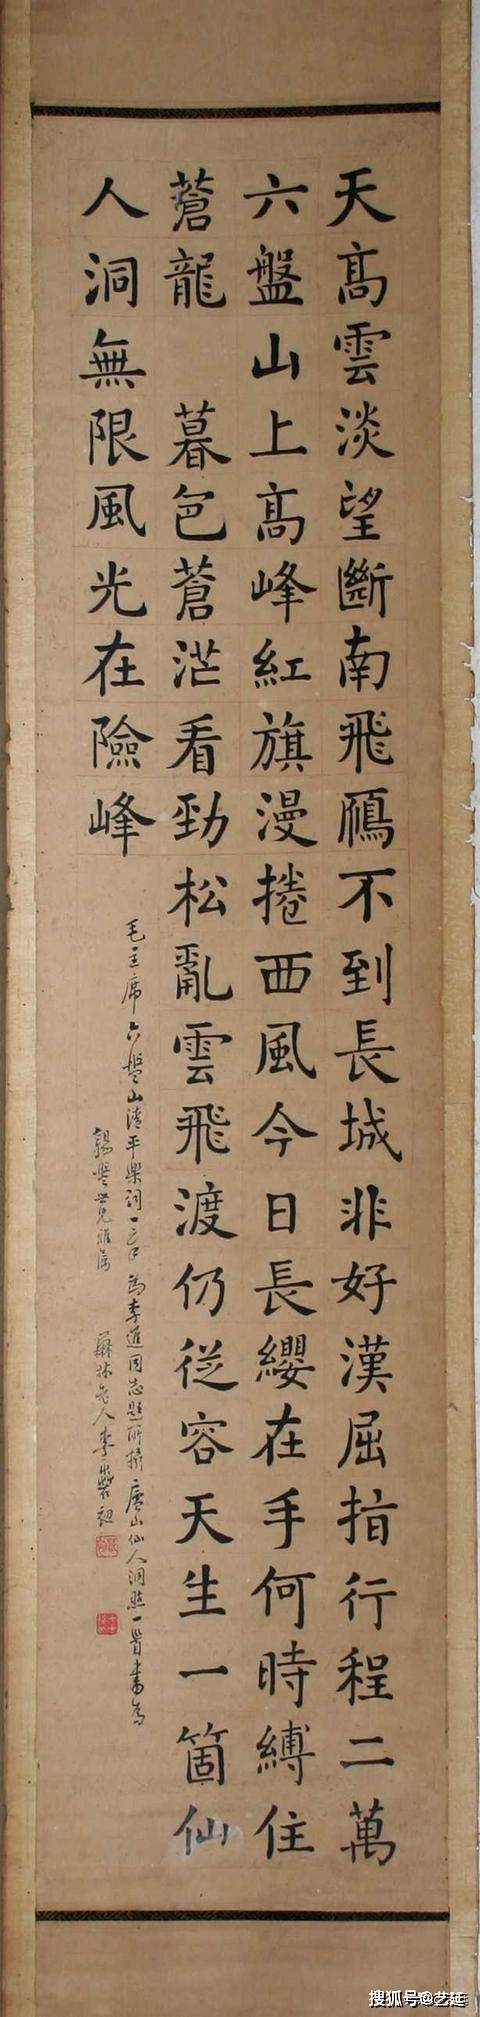 天高雲淡望斷南飛鴈不到長城非好漢屈指行程二萬
六盤山上高峰紅旗漫捲西風今日長纓在手何時縛住
蒼龍 暮色蒼茫看勁松亂雲飛渡仍從容天生一箇仙
人洞無限風光在險峰
毛主席六盤山清平樂詞一首 為李進同志題所攝廬山仙人洞照一首書為
錫 世兄雅屬 蘇林老人李 初
搜狐号@艺廷